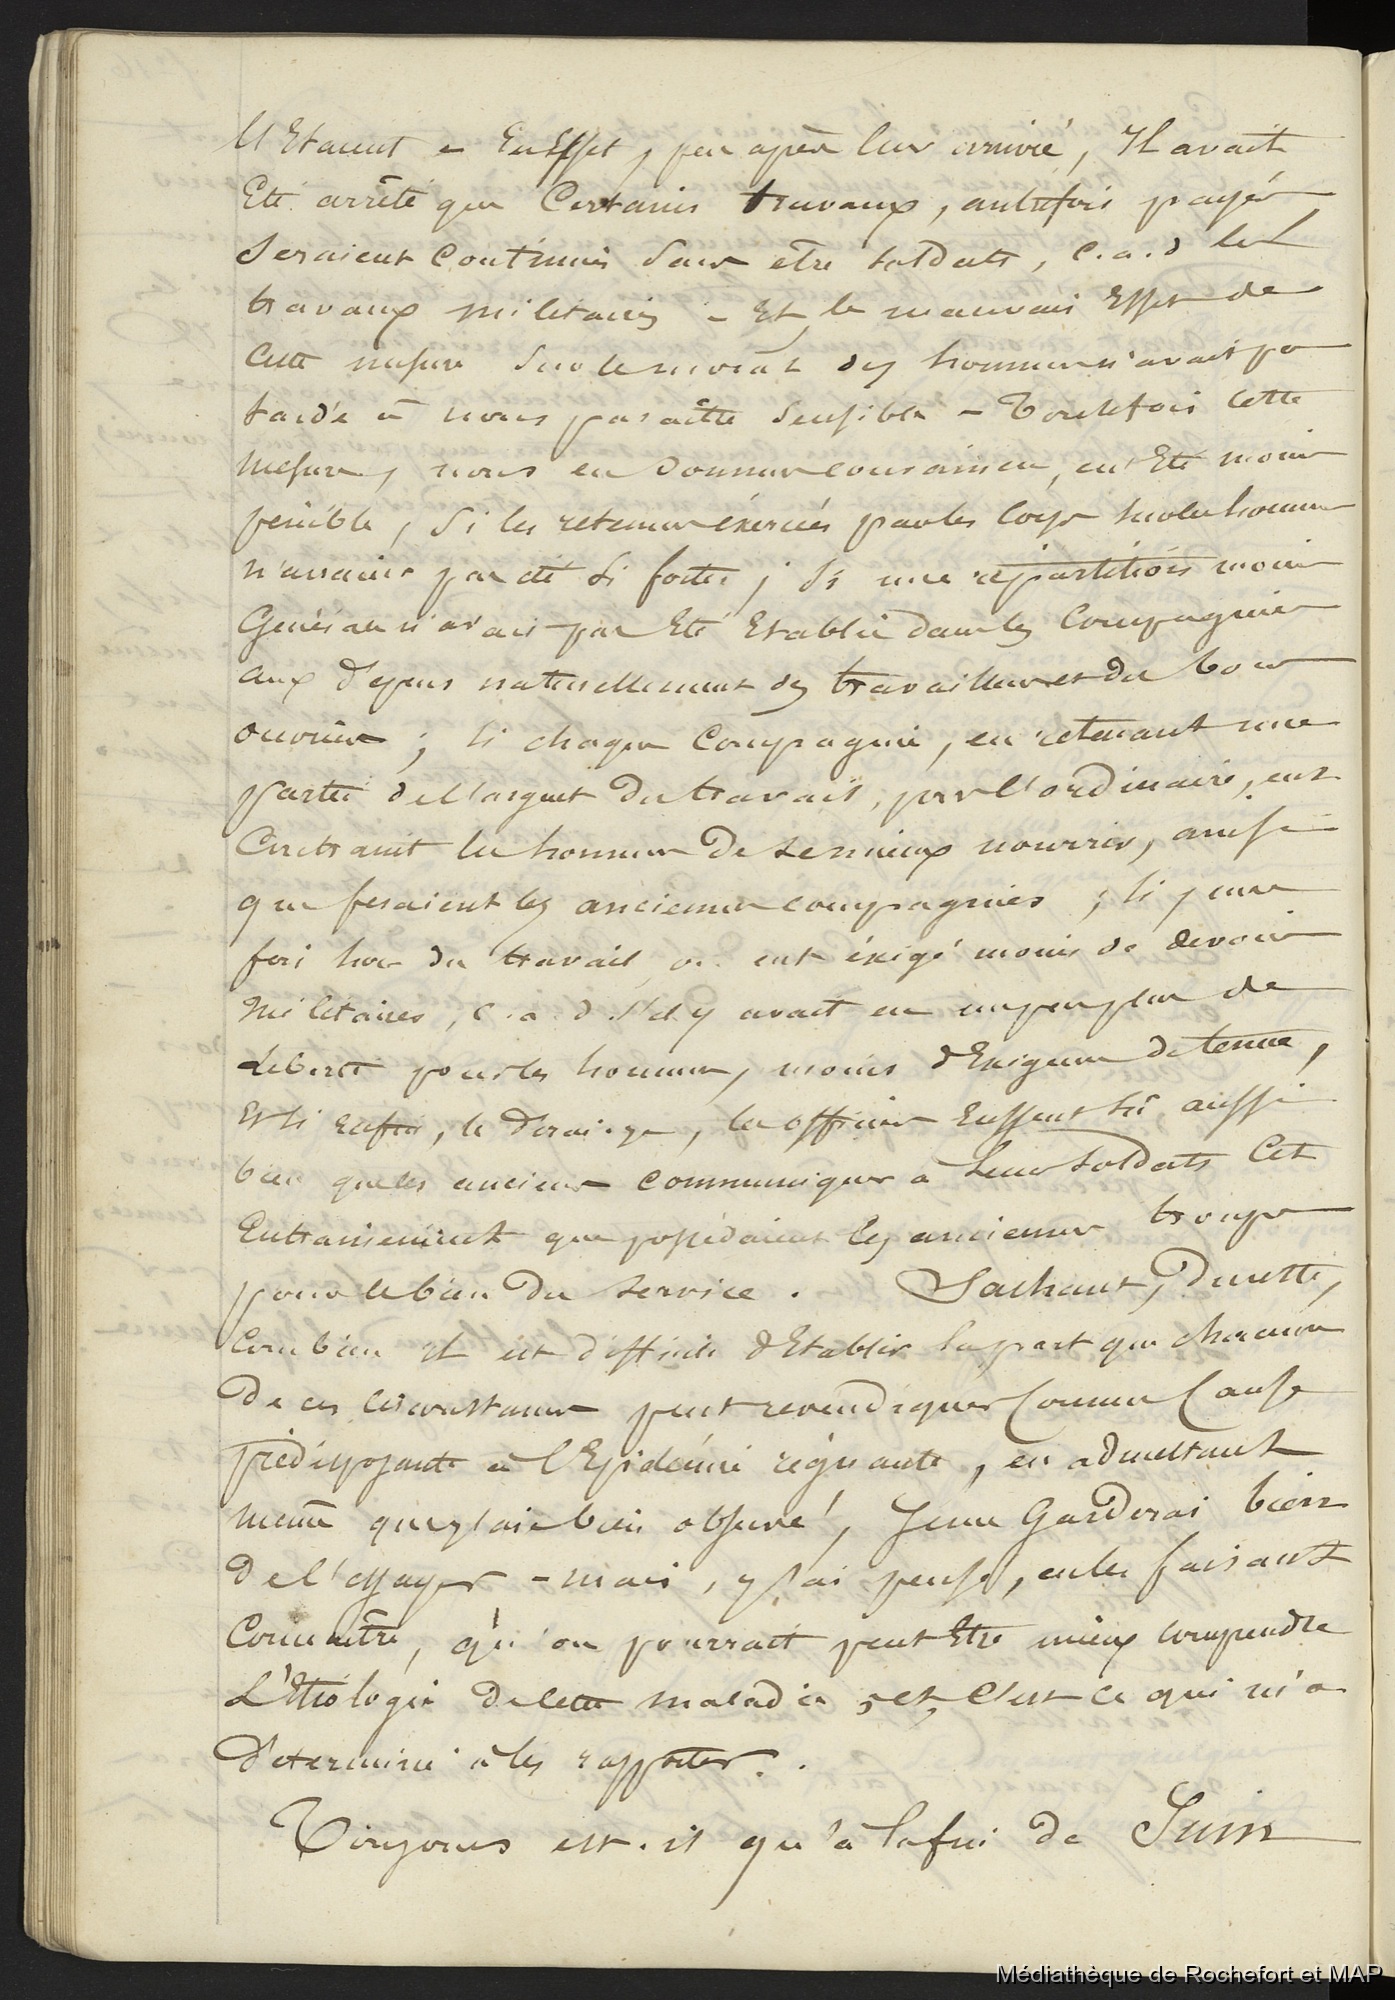 Etaient - En Effet, peu après leur arrivée, Il avait
Eté arrêté que Certains travaux, autrefois payés
Seraient Continués Sans être soldats, c.a.d les
travaux militaires - Et, le mauvais Effet de
Cette mesure Sur le moral des hommes n'avait pas
tardé à nous paraître Sensible - Toutefois Cette
mesure, nous en Sommes convaincu, eut Eté moins
pénible, Si les retenues éxercées par les Corps sur les hommes
n'avaient pas été Si fortes ; Si une répartition moins
Générale n'avait pas Eté Etablie dans les Compagnies
aux dépens naturellement des travailleurs et des bons
ouvriers ; Si chaque Compagnie, en retenant une
partie de l'argent du travail, pour l'ordinaire, eut
Contraint les hommes De se mieux nourrir, ainsi
que fesaient les anciennes compagnies ; Si, une
fois hors du travail, on eut éxigé moins de devoirs
Militaires, c.a.d. S'il y avait eu un peu plus de
Liberté pour les hommes, moins d'Exigence de tenue,
Et Si enfin, les officiers Eussent Su, aussi
bien que les anciens communiquer à Leurs Soldats Cet
Entrainement que possédaient les anciennes troupes
pour le bien Du Service . Sachant, Du reste,
Combien il est difficile d'Etablir la part que chacune
De ces Circonstances peut revendiquer Comme Cause
prédisposante à l'Epidémie régnante, en admettant
même que j'aie bien observé, Je me Garderai bien
De l'essayer - mais, j'ai pensé, en les faisant
Connaître, qu'on pourrait peut Etre mieux comprendre
L'Etiologie De cette maladie, et, C'est ce qui m'a
Déterminé à les rapporter. .
Toujours est-il qu'à la fin de Juin
Médiathèque de Rochefort et MAP